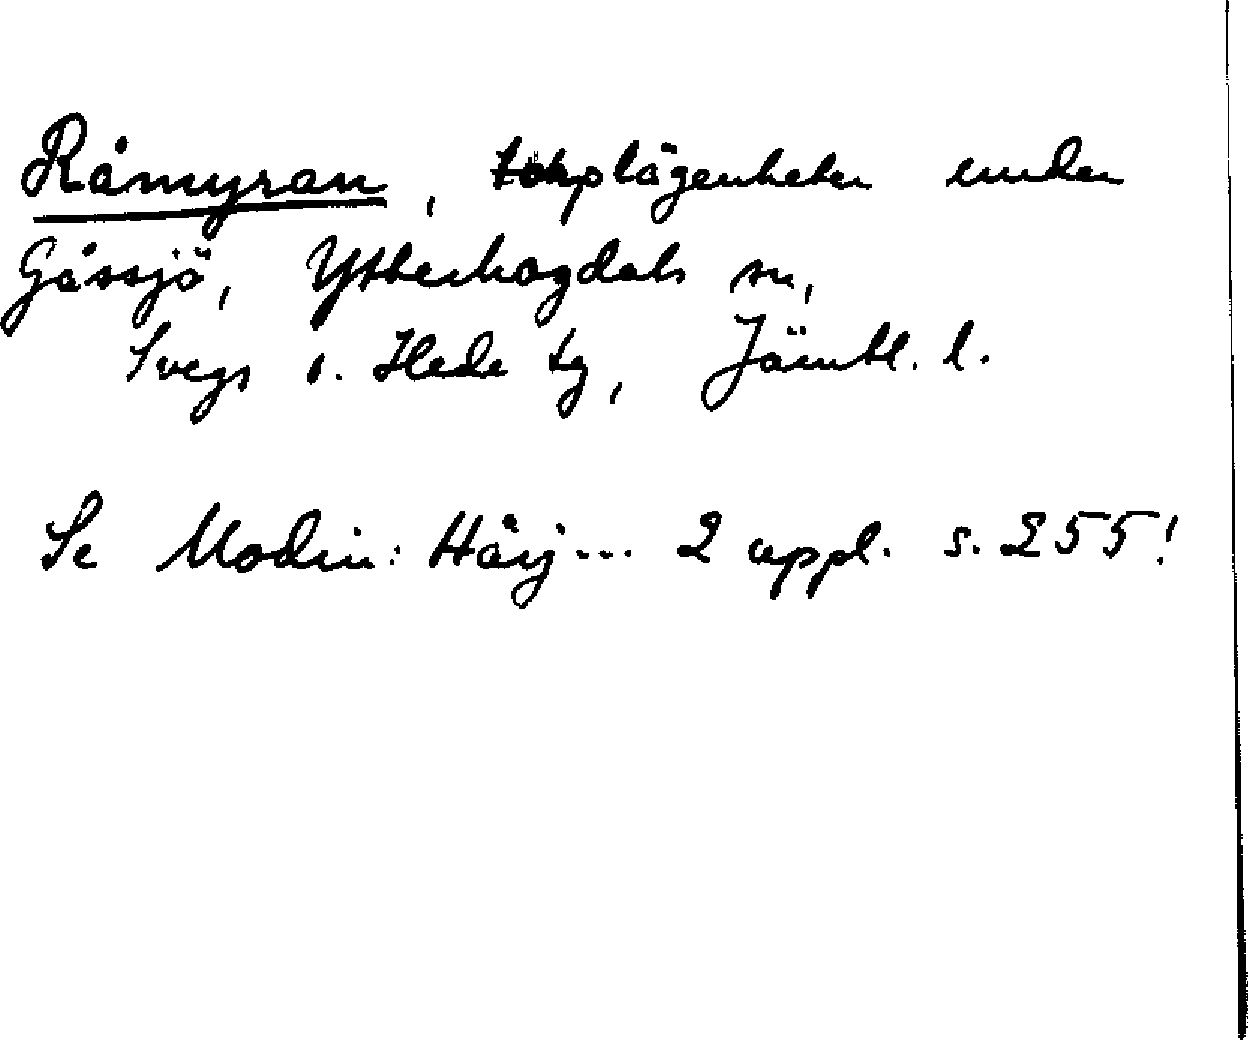 Råmyran, torplägenheter under
Gåssjö, Ytterhogdals sn,
Svegs o. Hede tg, Jämtl. l.
Se Modin: Härj... 2 uppl. s. 255!